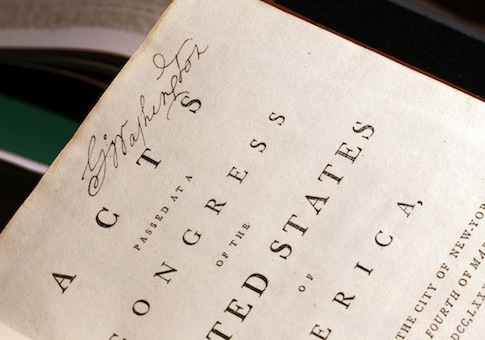 G:Washington
ACTS
PASSED AT A
CONGRESS
OF THE
TED STATES
OF
ERICA,
THE CITY OF NEW-YOR
FOURTH OF MAR
DCC,LXX